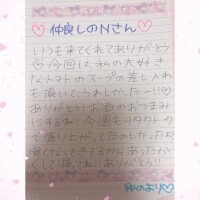 ♡仲良しのNさん♡
いつも来てくれてありがとう
今回は私の大好き
なトマトのスープの差し入れ
も頂いてうれしかったー!!♡
ありがとう♡お酒のおつまみ
にするね♪今週もコタクトの
で盛り上がってたのしかった
してできてるから
くして!来てね!!ありがとう!!
ゆのより♡